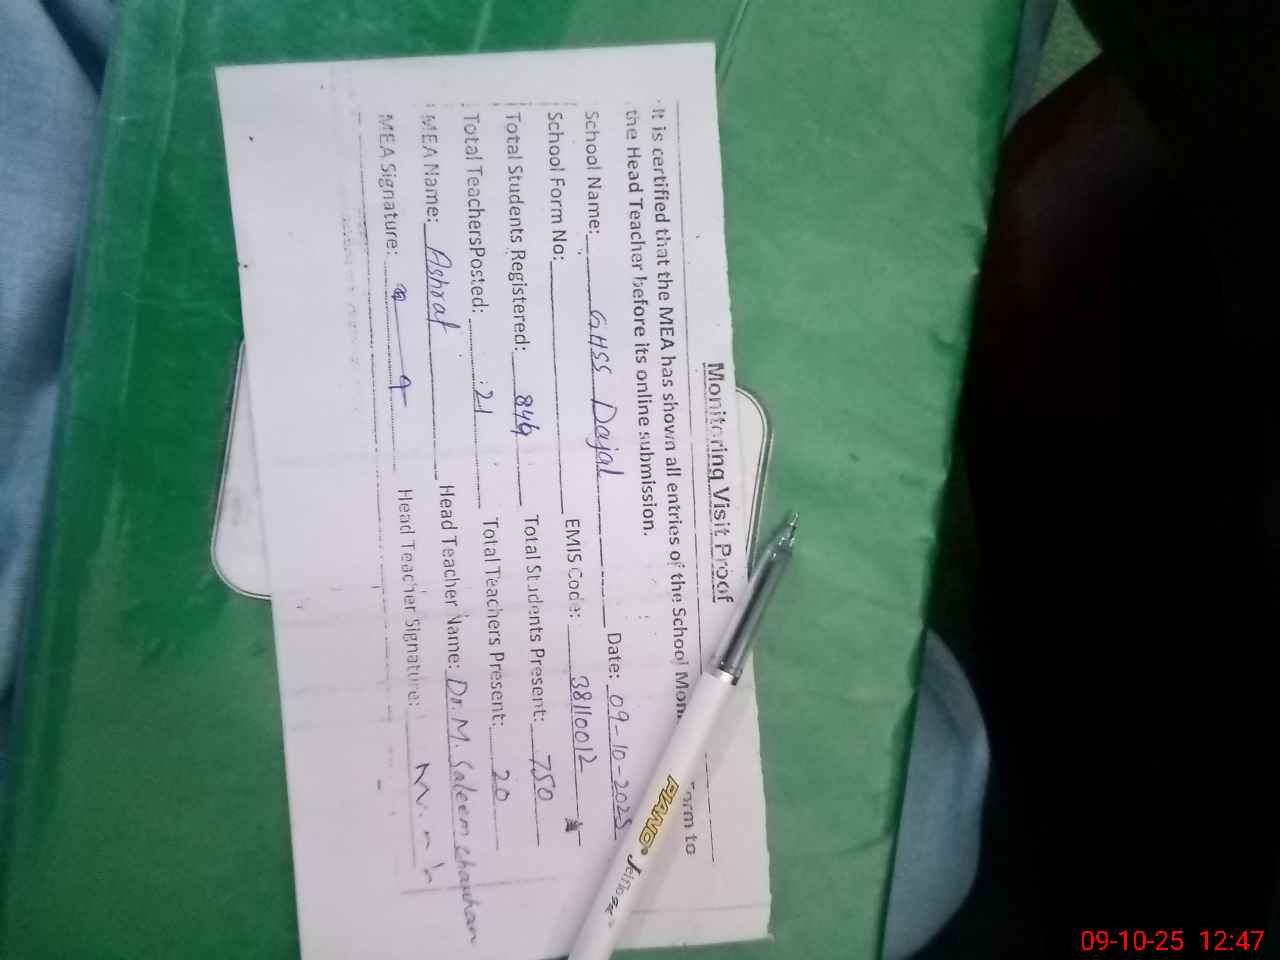 Monitoring Visit Proof
It is certified that the MEA has shown all entries of the School Moni orm to
the Head Teacher before its online submission.
School Name: GHSS Dajal Date: 09-10-2025
School Form No: EMIS Code: 38110012
Total Students Registered: 849 Total Students Present: 750
Total TeachersPosted: 21 Total Teachers Present: 20
MEA Name: Ashraf Head Teacher Name: Dr. M. Saleem Chauhan
MEA Signature: Head Teacher Signature:
PIANO Jelflo
09-10-25 12:47